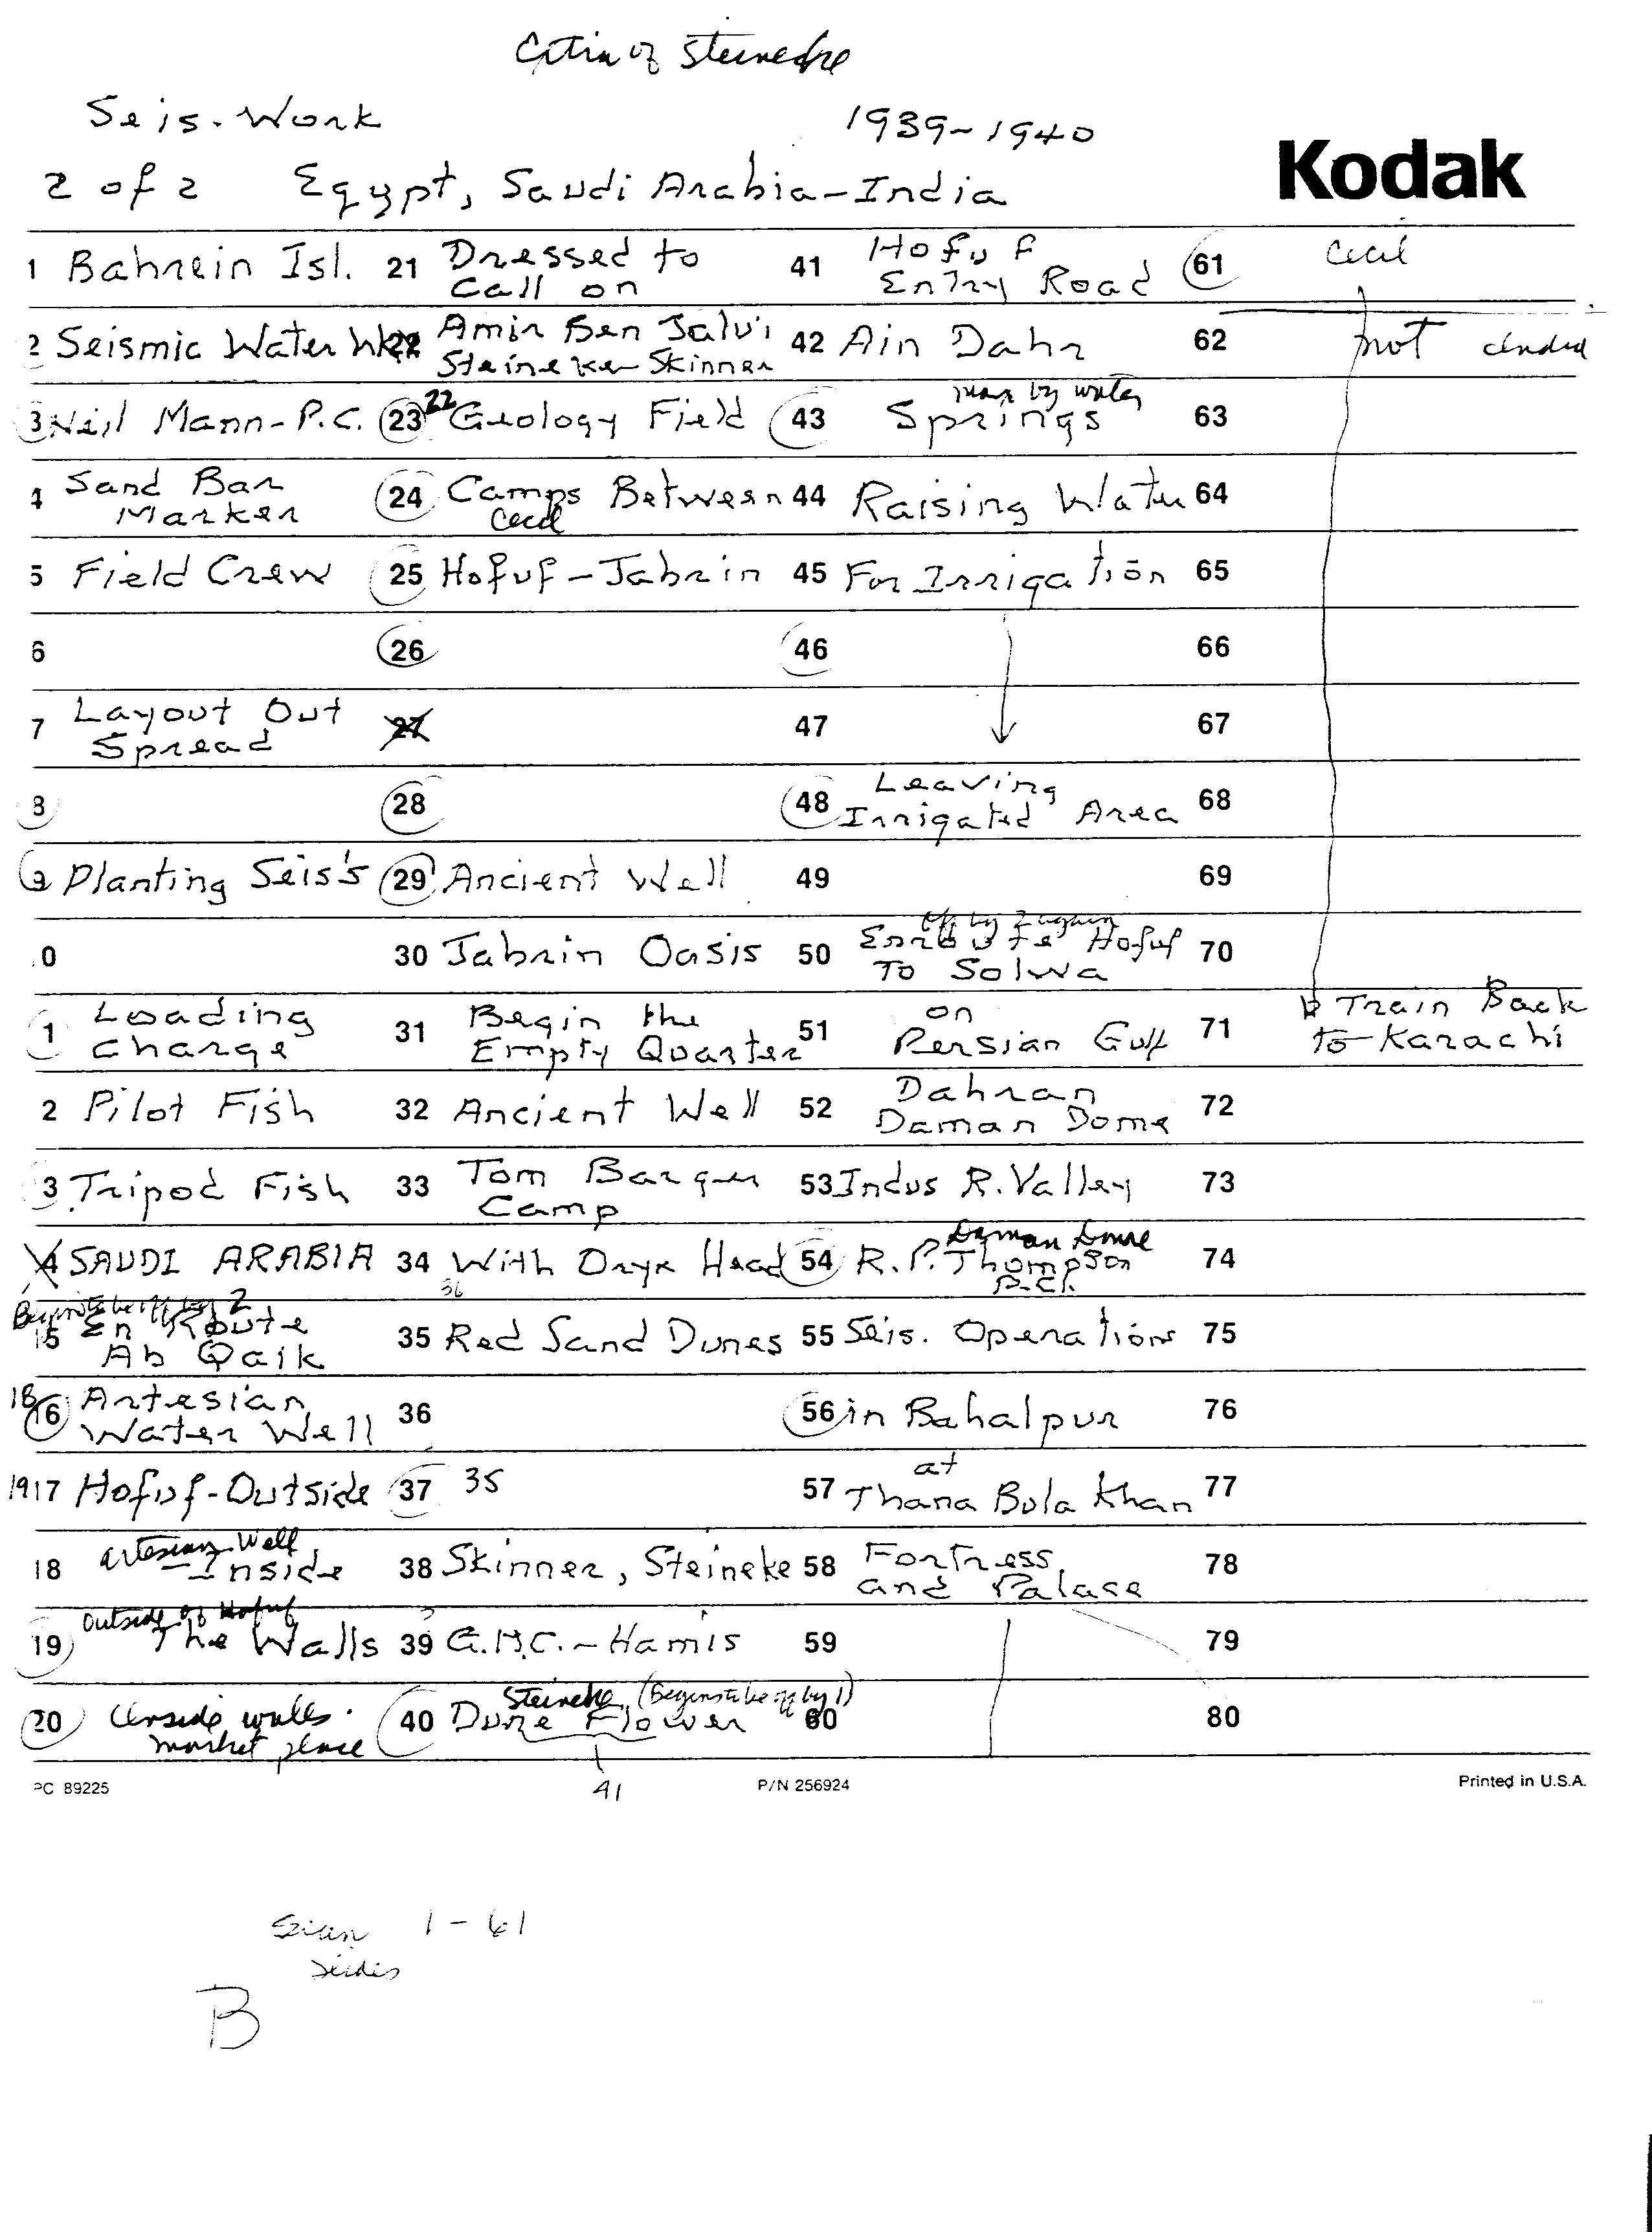 of
Seis. Work 1939-1940
2 of 2 Egypt, Saudi Arabia - India
Kodak
1 Bahrein Isl.
2 Seismic Water Wk
3 Neil Mann - P.C.
4 Sand Bar
Marker
5 Field Crew
6
7 Layout Out
Spread
8
9 Planting Seis's
0
1 Loading
Charge
2 Pilot Fish
3 Tripod Fish
4 SAUDI ARABIA
2
15 En Route
Ab Qaik
18 16 Artesian
Water Well
19 17 Hofuf - Outside
artesian Well
18 - Inside
outside of Hofuf
19 The Walls
20 inside walls.
market place
21 Dressed to
Call on
22 Amir Ben Jalvi
Steineke Skinner
23 22 Geology Field
24 Camps Between
Cecil
25 Hofuf - Jabrin
26
27
28
29 Ancient Well
30 Jabrin Oasis
31 Begin the
Empty Quarter
32 Ancient Well
33 Tom Barger
Camp
34 With Oryx Head
36
35 Red Sand Dunes
36
37 35
38 Skinner, Steineke
39 G.M.C. - Hamis
Steineke (Begins to be off by 1)
40 Dune Flower
41
41 Hofuf
Entry Road
42 Ain Dahr
man by water
43 Springs
44 Raising Water
45 For Irrigation
46
47
48 Leaving
Irrigated Area
49
off by 2 again
50 Enroute Hofuf
To Solwa
51 on
Persian Gulf
52 Dahran
Daman Dome
53 Indus R. Valley
Daman Dome
54 R.P. Thompson
P.Ch.
55 Seis. Operations
56 in Bahalpur
57 at
Thana Bula Khan
58 Fortress
and Palace
59
60
61 Cecil
62 not
63
64
65
66
67
68
69
70
71 Train Back
to Karachi
72
73
74
75
76
77
78
79
80
PC 89225 P/N 256924 Printed in U.S.A.
Scan 1 - 61
slides
B